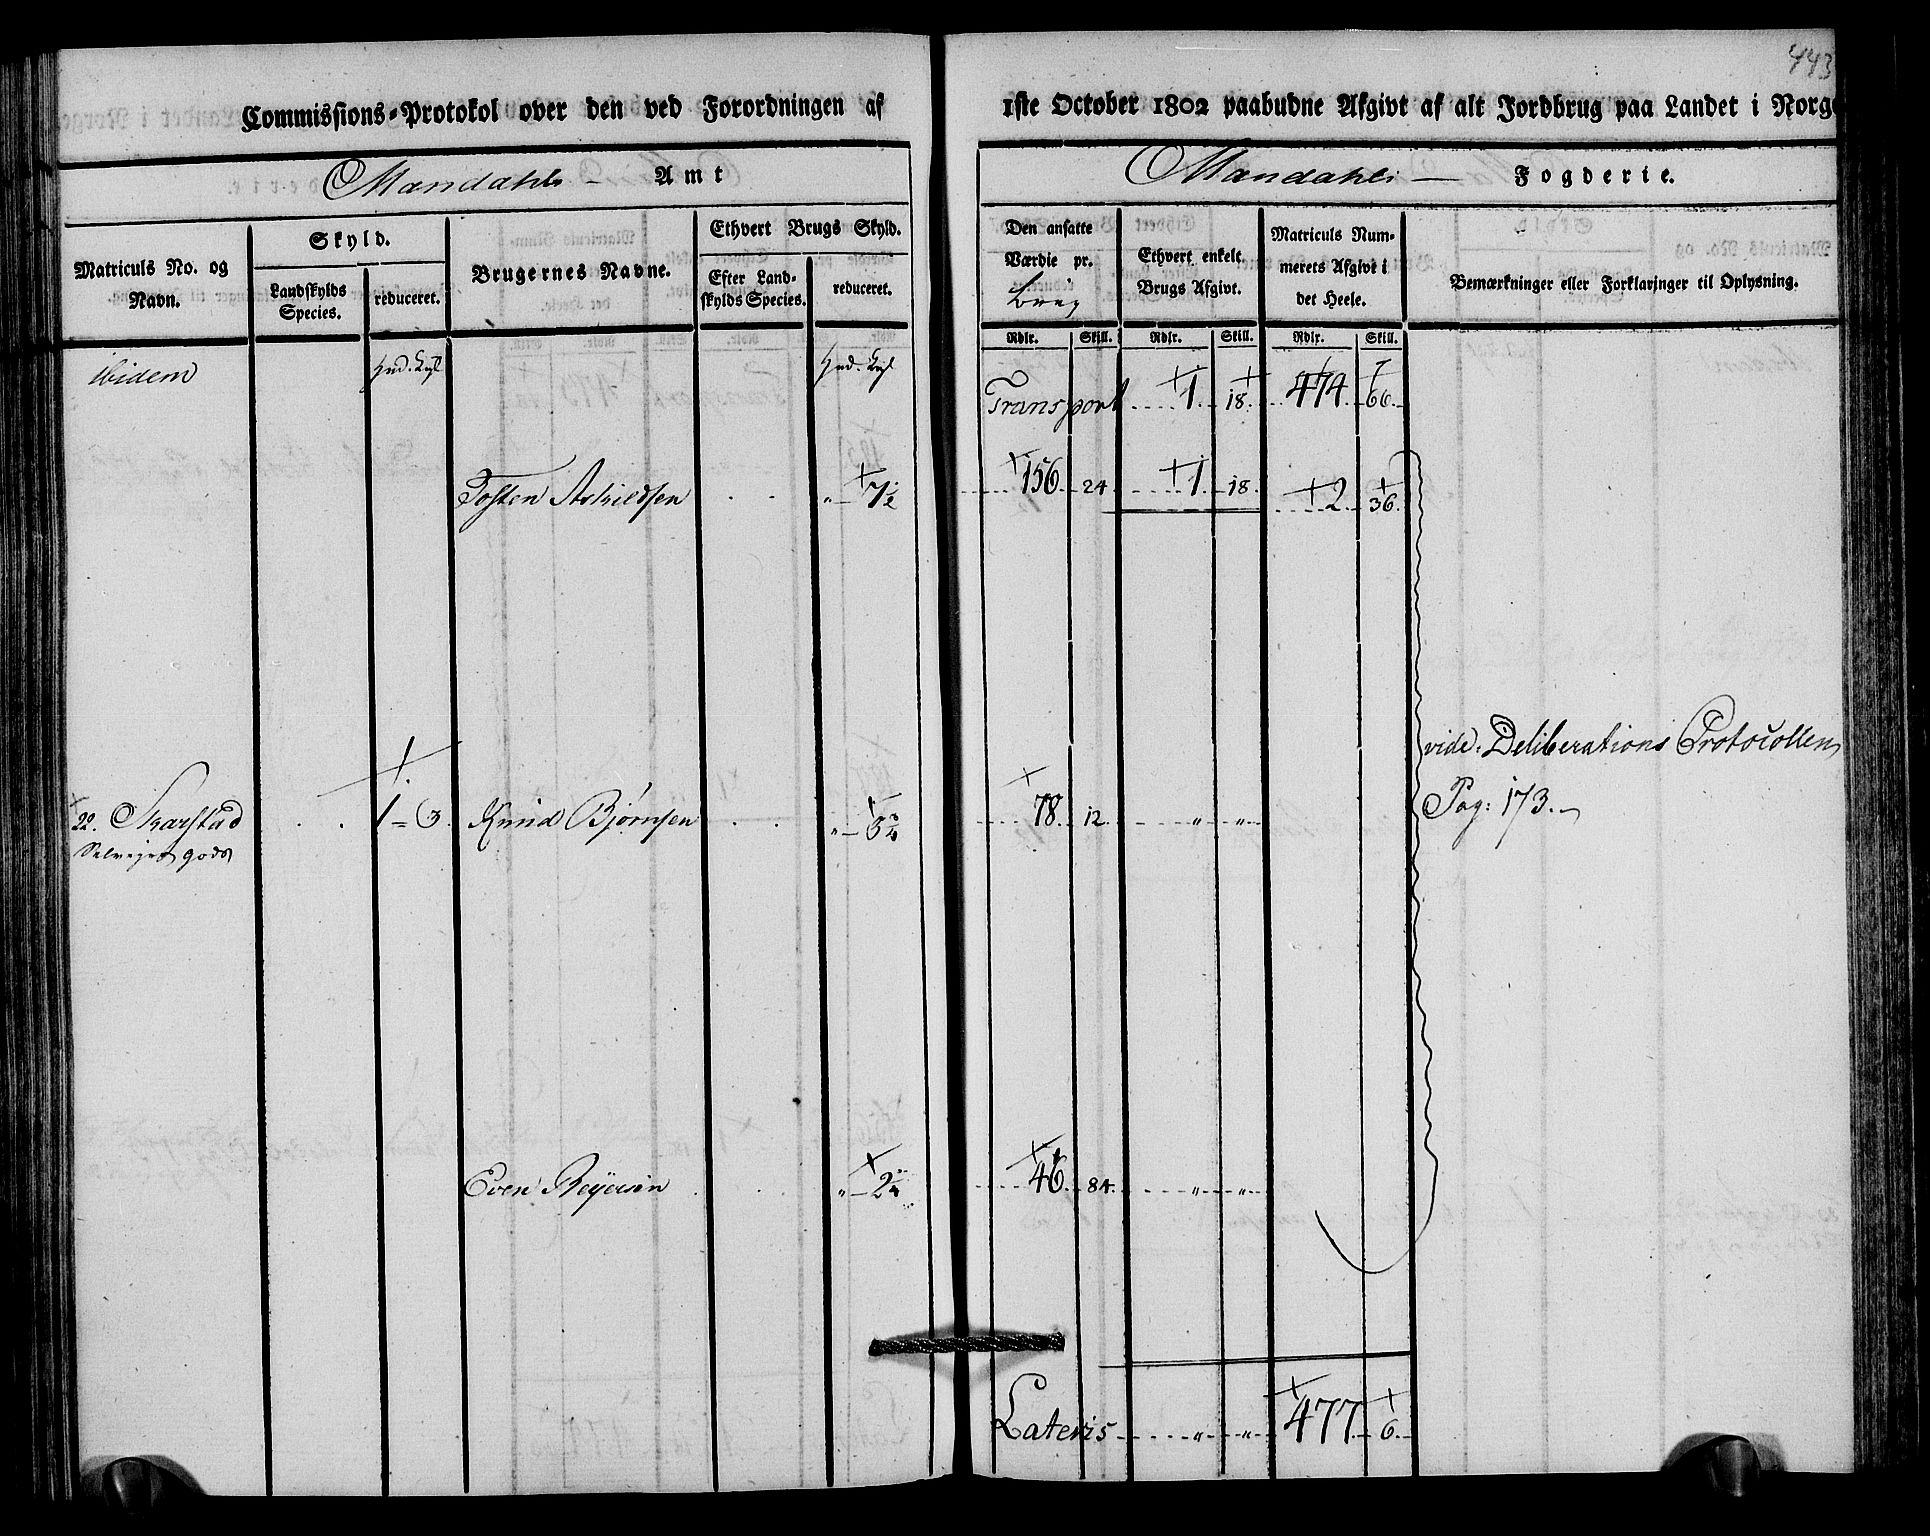 443
Commissions-Protokol over den ved Forordningen af 1ste October 1802 paabudne Afgivt af alt Jordbrug paa Landet i Norge
Mandahls Amt
Mandahls Fogderie.
Matriculs No. og Navn.
Skyld.
Landskylds Species.
reduceret.
Brugernes Navne.
Ethvert Brugs Skyld.
Efter Landskylds Species.
reduceret.
Den ansatte Værdie pr. brug
Ethvert enkelt Brugs Afgivt.
Matriculs Nummerets Afgivt i det Heele.
Bemærkninger eller Forklaringer til Oplysning.
Rdlr. Skill. Rdlr. Skill. Rdlr. Skill.
ibidem
Transport 1 18. 474 66.
Tosten Askildsen " 7½ 156 24 1 18. 2 36.
vide: Deliberations Protocollen
Pag: 173.
22. Skarstad 1 = 3. Knud Bjørnsen " 3¾ 78. 12. " "
Selveyer gods
Even Reyersen " 2¼ 46 84. " "
Lateris " " 477 6.